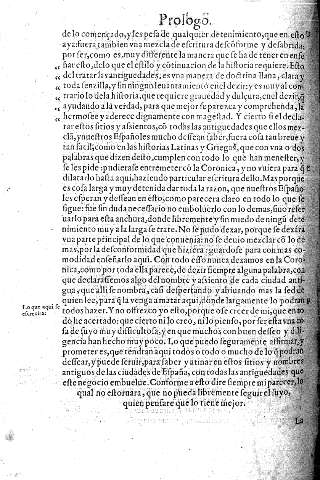 Prologo.
de lo comẽçado, y les pesa de qualquier detenimiento, que en esto
aya: fuera tambien vna mezcla de escritura desconforme y desabrida:
por ser, como es, muy differente la manera que se ha de tener en ense
ñar esto, de lo que el estilo y cõtinuacion de la historia requiere. Esto
del tratar las antiguedades, es vna manera de doctrina llana, clara y
toda senzilla, y sin ningun leuantamiento en el dezir: y es muy al con
trario lo de la historia, que requiere grauedad y dulçura, cõ el dezir,
ayudando a la verdad, para que mejor se parezca y comprehenda, le
hermosee y aderece dignamente con magestad. Y cierto si el decla
rar estos sitios y asientos, cõ todas las antiguedades que ellos mez
clã, y nuestros Españoles mucho dessean saber, fuera cosa tan breue y
tan facil, como en las historias Latinas y Griegas, que con vna o dos
palabras que dizen desto, cumplen con todo lo que han menester, y
se les pide: pudierase entremeter cõ la Coronica, y no vuiera para q̃
dilatarlo hasta aqui, haziendo particular escritura dello. Mas porque
es cosa larga y muy detenida dar toda la razon, que nuestros Españo
les esperan y dessean en esto, como parecera claro en todo lo que se
sigue: fue sin duda necessario no emboluerlo con lo demas, sino reser
uarlo para esta anchura, donde libremente y sin miedo de ningũ dete
nimiento muy a la larga se trate. No se pudo dexar, porque se dexára
vua parte principal de lo que conuenia: no se deuio mezclar cõ lo de
mas, por la desconformidad que hiziera: guardose para con mas co-
modidad enseñarlo aqui. Con todo esso nunca dexamos en la Coro
nica, como por toda ella parece, de dezir siempre alguna palabra, cõ
que declarassemos algo del nombre y asiento de cada ciudad anti
gua, que alli se nombra, casi despertando y abiuando mas la sed de
quien lee, para q̃ la venga amatar aqui, donde largamente lo podran
todos hazer. Y no offrezco yo esto, porque ose creer de mi, que en to
do he acertado: que cierto ni lo creo, ni lo pienso, por ser esta vna co
sa de suyo muy dificultosa, y en que muchos con buen desseo y di-
ligencia han hecho muy poco. Lo que puedo seguramente affirmar, y
prometer es, que tendran aqui todos o todo o mucho de lo q̃ podrã
dessear, y puede seruir, para saber y atinar en estos sitios y nombres
antiguos de las ciudades de España, con todas las antiguedades que
este negocio embuelue. Conforme a esto dire siempre mi parecer, lo
qual no estoruara, que no pueda libremente seguir el suyo,
quien pensare que lo tiene mejor.
Lo que aqui se
La